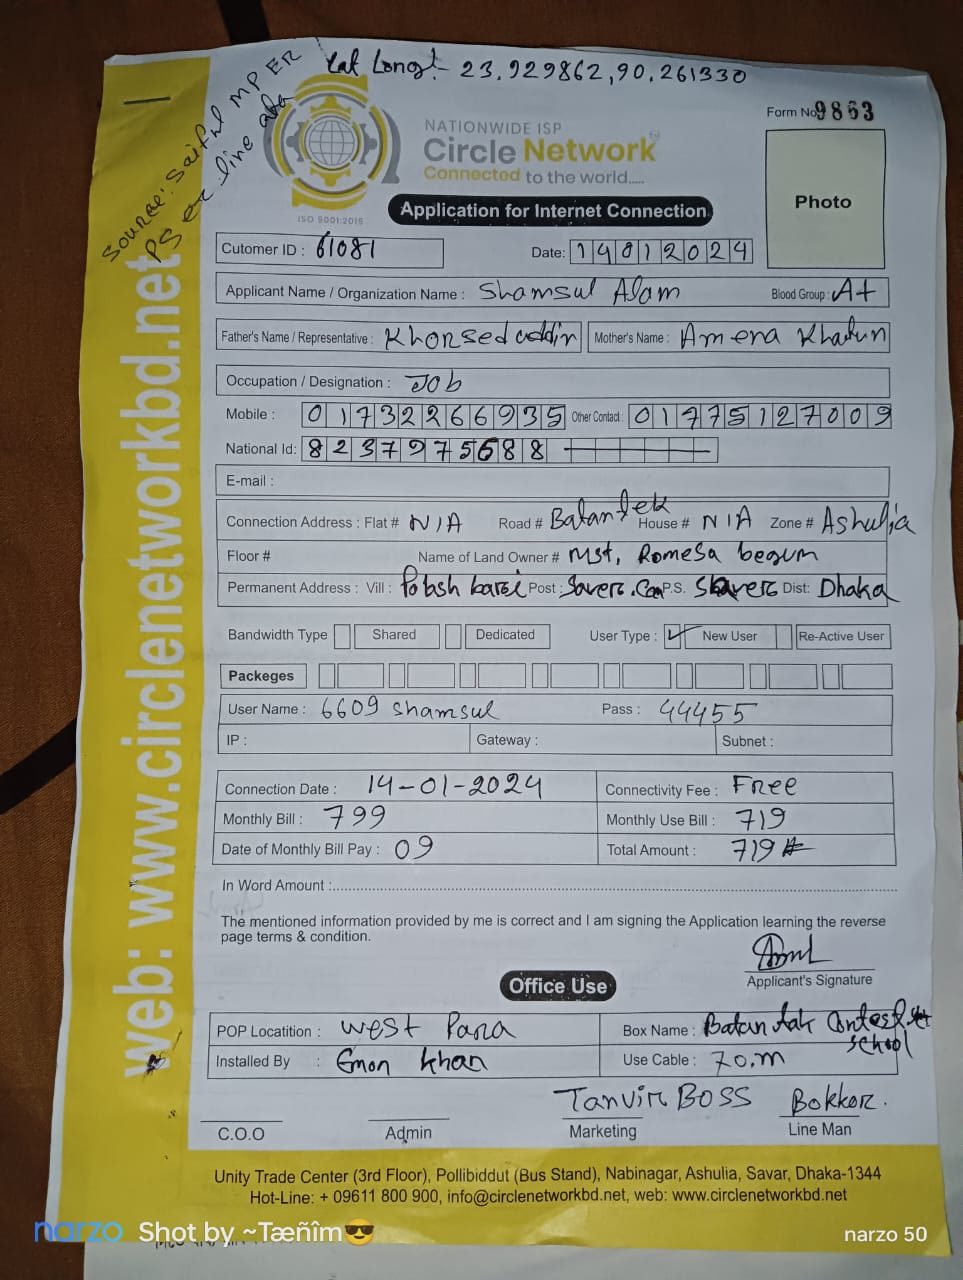 Lat Long!- 23.929862,90.261330
Source: Saiful MP ER
line
Form No 9863
NATIONWIDE ISP
Circle Network
Connected to the world.....
ISO 9001:2015
Application for Internet Connection
Photo
Cutomer ID : 61081
Date: 14012024
Applicant Name / Organization Name : Shamsul Alam
Blood Group : A+
Father's Name / Representative : Khorseduddin
Mother's Name : Amena Khatun
Occupation / Designation : Job
Mobile : 01732266935 Other Contact : 01775127009
National Id: 8237975688
E-mail :
Connection Address : Flat # N/A Road # Batantek House # N/A Zone # Ashulia
Floor # Name of Land Owner # Mst, Romesa begum
Permanent Address : Vill : Post : P.S. Dist: Dhaka
Bandwidth Type Shared Dedicated User Type : ✓ New User Re-Active User
Packeges
User Name : 6609 shamsul Pass : 44455
IP : Gateway : Subnet :
Connection Date : 14-01-2024 Connectivity Fee : Free
Monthly Bill : 799 Monthly Use Bill : 719
Date of Monthly Bill Pay : 09 Total Amount : 719
In Word Amount :
The mentioned information provided by me is correct and I am signing the Application learning the reverse
page terms & condition.
Applicant's Signature
Office Use
POP Locatition : West Para Box Name : Batan tak school
Installed By : Emon Khan Use Cable : 70.m
Tanvir BOSS Bokker.
C.O.O Admin Marketing Line Man
Unity Trade Center (3rd Floor), Pollibiddut (Bus Stand), Nabinagar, Ashulia, Savar, Dhaka-1344
Hot-Line: + 09611 800 900, info@circlenetworkbd.net, web: www.circlenetworkbd.net
web: www.circlenetworkbd.net
narzo Shot by ~Tæñîm😎
narzo 50